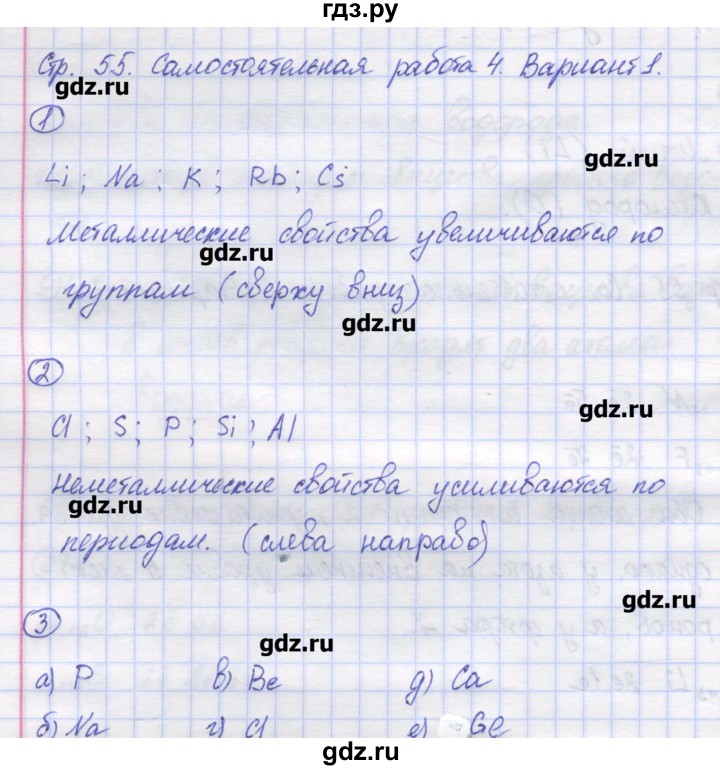 гдз.ру
Стр. 55. Самостоятельная работа 4. Вариант 1.
gdz.ru
1
gdz.ru
Li; Na; K; Rb; Cs
Металлические свойства увеличиваются по
gdz.ru
группам (сверху вниз)
gdz.ru
2
gdz.ru
Cl; S; P; Si; Al
Неметаллические свойства усиливаются по
gdz.ru
периодам. (слева направо)
gdz.ru
3
gdz.ru
а) P в) Be д) Ca
б) Na г) Cl е) Ge
gdz.ru